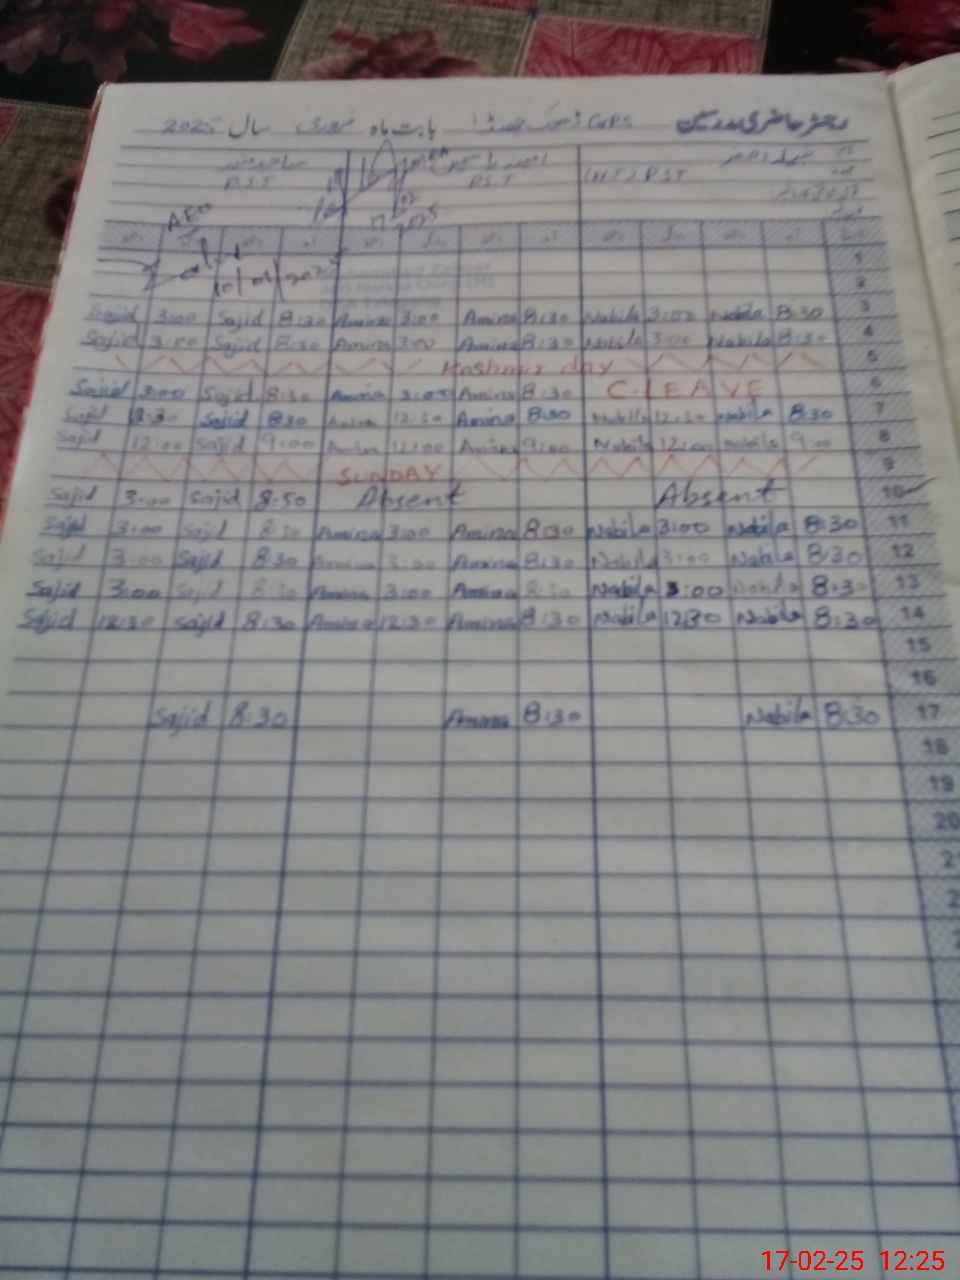 رجسٹر حاضری مدرسین GPS ڈھوک جھنڈا بابت ماہ فروری سال 2025
(HT) PST P.S.T P.S.T
AEO
1
2
Sajid 3:00 Sajid 8:30 Amina 3:00 Amina 8:30 Nabila 3:00 Nabila 8:30 3
Sajid 3:00 Sajid 8:30 Amina 3:00 Amina 8:30 Nabila 3:00 Nabila 8:30 4
Kashmir day 5
Sajid 3:00 Sajid 8:30 Amina 3:00 Amina 8:30 C.LEAVE 6
Sajid Sajid 8:30 Amina 12:30 Amina 8:30 Nabila 12:30 Nabila 8:30 7
Sajid 12:00 Sajid 9:00 Amina 12:00 Amina 9:00 Nabila 12:00 Nabila 9:00 8
SUNDAY 9
Sajid 3:00 Sajid 8:50 Absent Absent 10
Sajid 3:00 Sajid 8:30 Amina 3:00 Amina 8:30 Nabila 3:00 Nabila 8:30 11
Sajid 3:00 Sajid 8:30 Amina 3:00 Amina 8:30 Nabila 3:00 Nabila 8:30 12
Sajid 3:00 Sajid 8:30 Amina 3:00 Amina 8:30 Nabila 3:00 Nabila 8:30 13
Sajid 12:30 Sajid 8:30 Amina 12:30 Amina 8:30 Nabila 12:30 Nabila 8:30 14
15
16
Sajid 8:30 Amina 8:30 Nabila 8:30 17
18
19
20
17-02-25 12:25